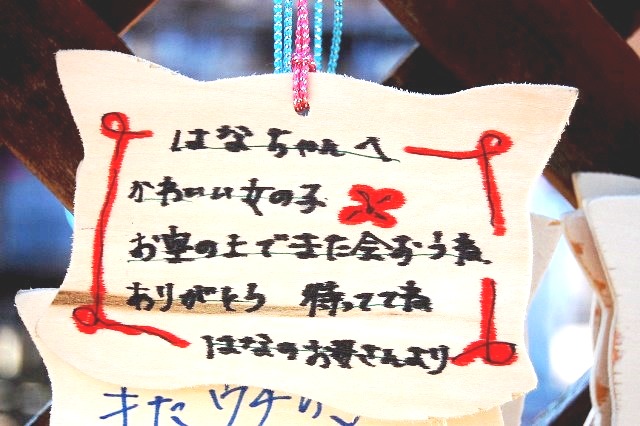 はなちゃんへ
かわいい女の子
お空の上でまた会おうね
ありがとう 待っててね
はなのお母さんより
またウチの